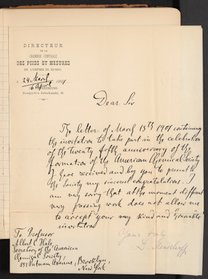 DIRECTEUR
DE LA
CHAMBRE CENTRALE
DES POIDS ET MESURES
24 March
6 April 1901
Dear Sir
The letter of March 15th 1901 containing
the invitation to take part in the celebration
of the twenty fifth anniversary of the
formation of the American Chemical Society
I have received and by you to permit
the Society my sincere congratulations. I
am very sorry that at the moment different
very pressing work does not allow me
to accept your very kind and honorable
invitation
Yours truly
To Professor
Albert C. Hale
Secretary of the American
Chemical Society,
551 Putnam Avenue, Brooklyn,
New York